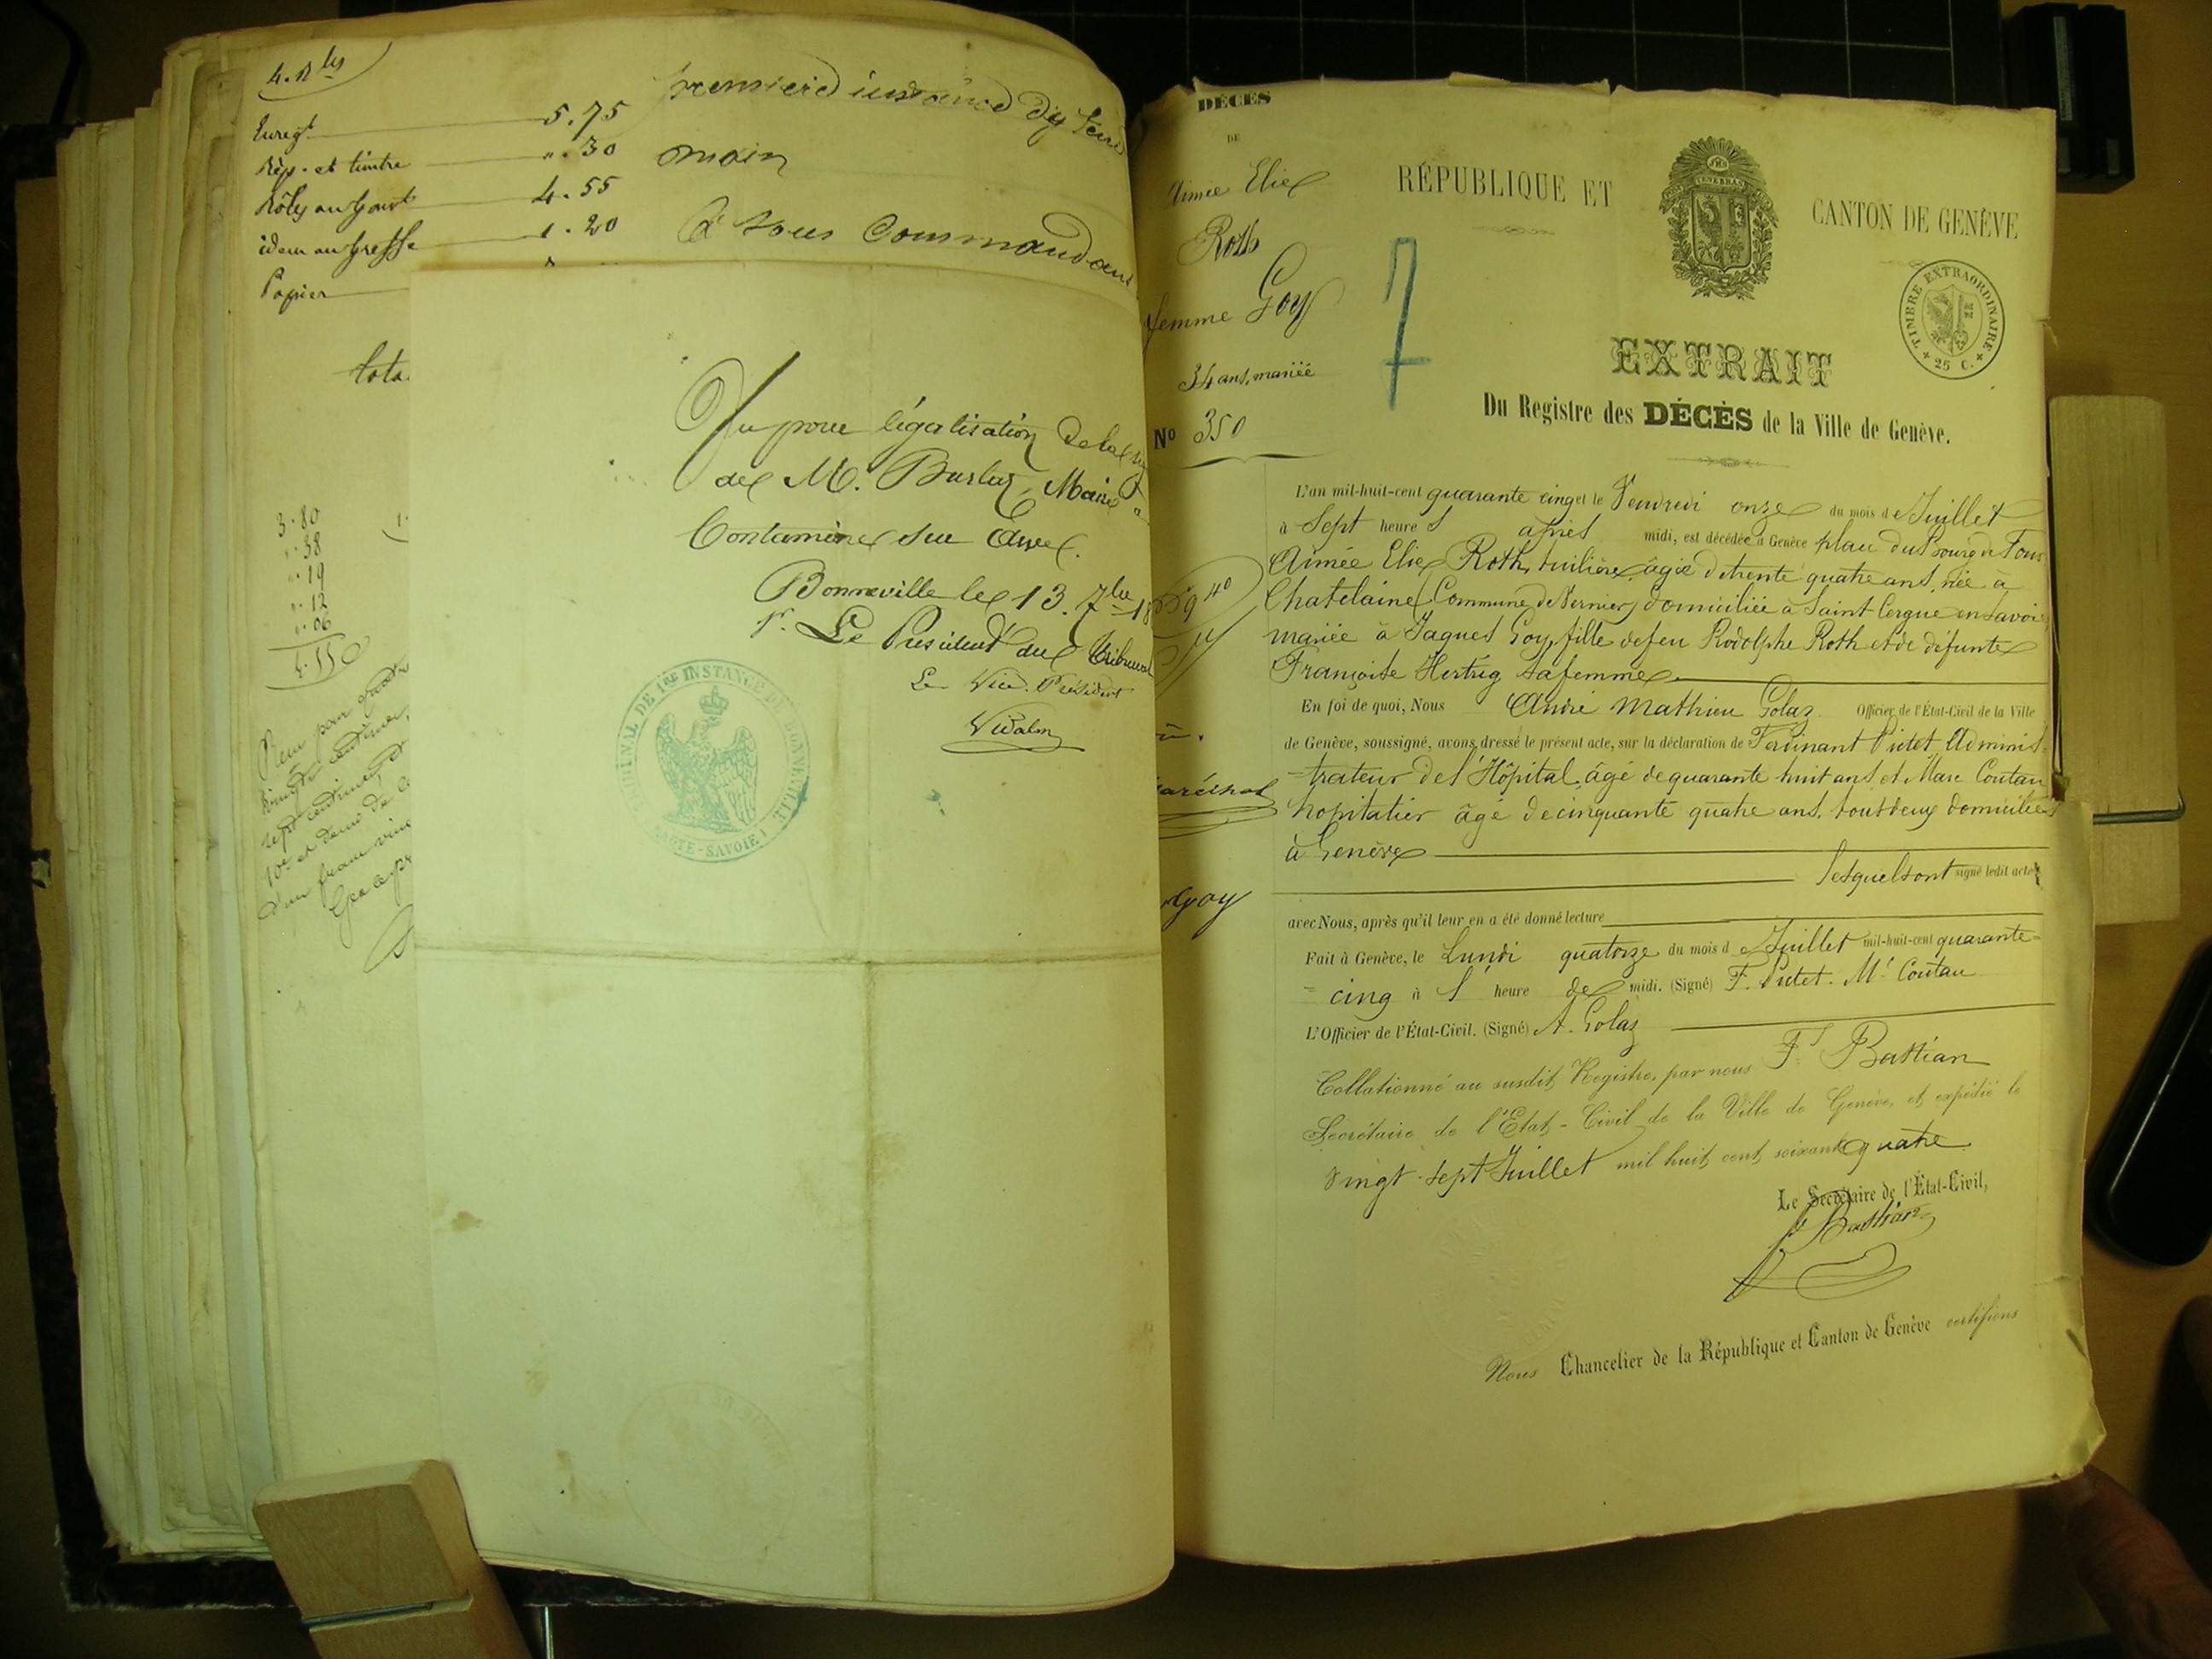 4. Rles
Enregt 5.75
Rép. et timbre ". 30
Rôles au Gouvt 4.55
idem au greffe 1.20
Papier
tota
première instance
main
à tous commandans
3.80
". 38
". 19
". 12
". 06
4.55
Vu pour légalisation de la
de M. Maire
Contamine sur Arve.
Bonneville le 13. 7bre 18
Pr. Le Président du Tribunal
Le Vice. Président
TRIBUNAL DE 1RE INSTANCE DE BONNEVILLE
HAUTE-SAVOIE
DÉCÈS
DE
Aimée Elie
Roth
femme Goy
34 ans, mariée
No 350
7
RÉPUBLIQUE ET CANTON DE GENÈVE
TIMBRE EXTRAORDINAIRE
25 C.
EXTRAIT
Du Registre des DÉCÈS de la Ville de Genève.
L'an mil-huit-cent quarante cinq et le Vendredi onze du mois de Juillet
à Sept heures après midi, est décédée à Genève place du Bourg de Four
Aimée Elie Roth, tuilière, âgée de trente quatre ans, née à
Chatelaine (Commune de Vernier) domiciliée à Saint Cergue en Savoie,
mariée à Jaques Goy, fille de feu Rodolphe Roth et de défunte
Françoise Hertrig sa femme.
En foi de quoi, Nous André Mathieu Golaz Officier de l'État-Civil de la Ville
de Genève, soussigné, avons dressé le présent acte, sur la déclaration de Ferdinant Pictet, Adminis-
-trateur de l'Hôpital, âgé de quarante huit ans, et Marc Coutau
hopitalier âgé de cinquante quatre ans, tous deux domiciliés
à Genève
lesquels ont signé ledit acte
avec Nous, après qu'il leur en a été donné lecture
Fait à Genève, le Lundi quatorze du mois de Juillet mil-huit-cent quarante-
= cinq à 1 heure de midi. (Signé) F. Pictet. Mc Coutau
L'Officier de l'État-Civil. (Signé) A. Golaz
Collationné au susdit Registre, par nous Fs Bastian
Secrétaire de l'État-Civil de la Ville de Genève, et expédié le
Vingt-sept Juillet mil huit cent soixante quatre
Le Secrétaire de l'État-Civil,
Bastian
Nous Chancelier de la République et Canton de Genève certifions
Goy